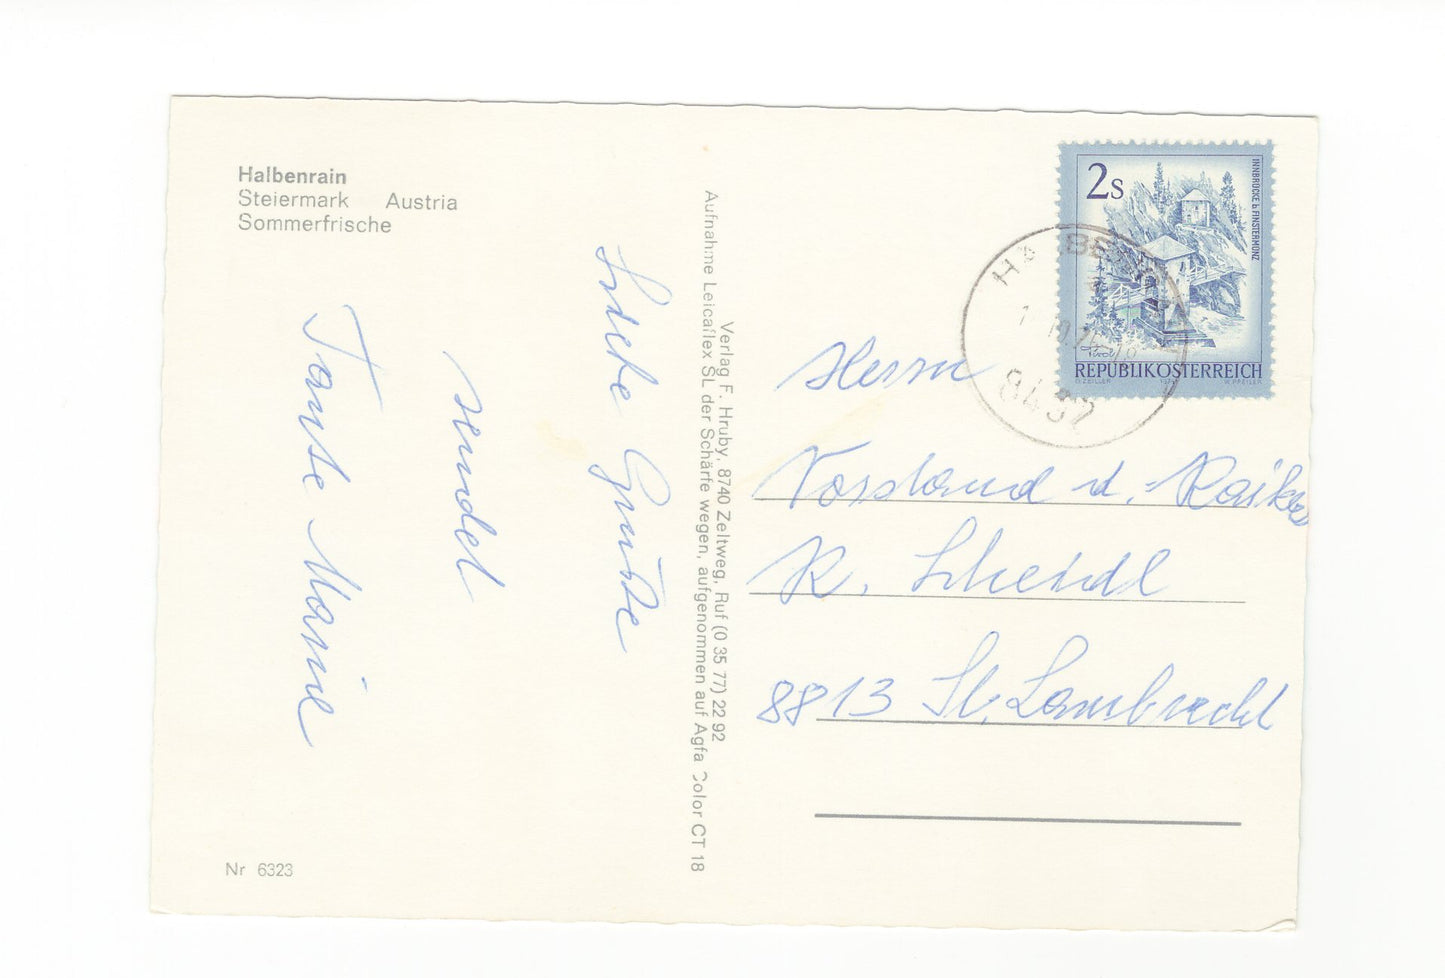 Halbenrain
Steiermark Austria
Sommerfrische
Liebe Grüße
sendet
Tante Marie
Nr 6323
Verlag F. Hruby, 8740 Zeltweg, Ruf (0 35 77) 22 92
Aufnahme Leicaflex SL der Schärfe wegen, aufgenommen auf Agfa Color CT 18
2s
INNBRÜCKE b. FINSTERMÜNZ
Tirol
REPUBLIK ÖSTERREICH
O. ZEILLER 1974 W. PFEILER
8492
Herrn
Vorstand d.
K. Schendl
8813 St. Lambrecht